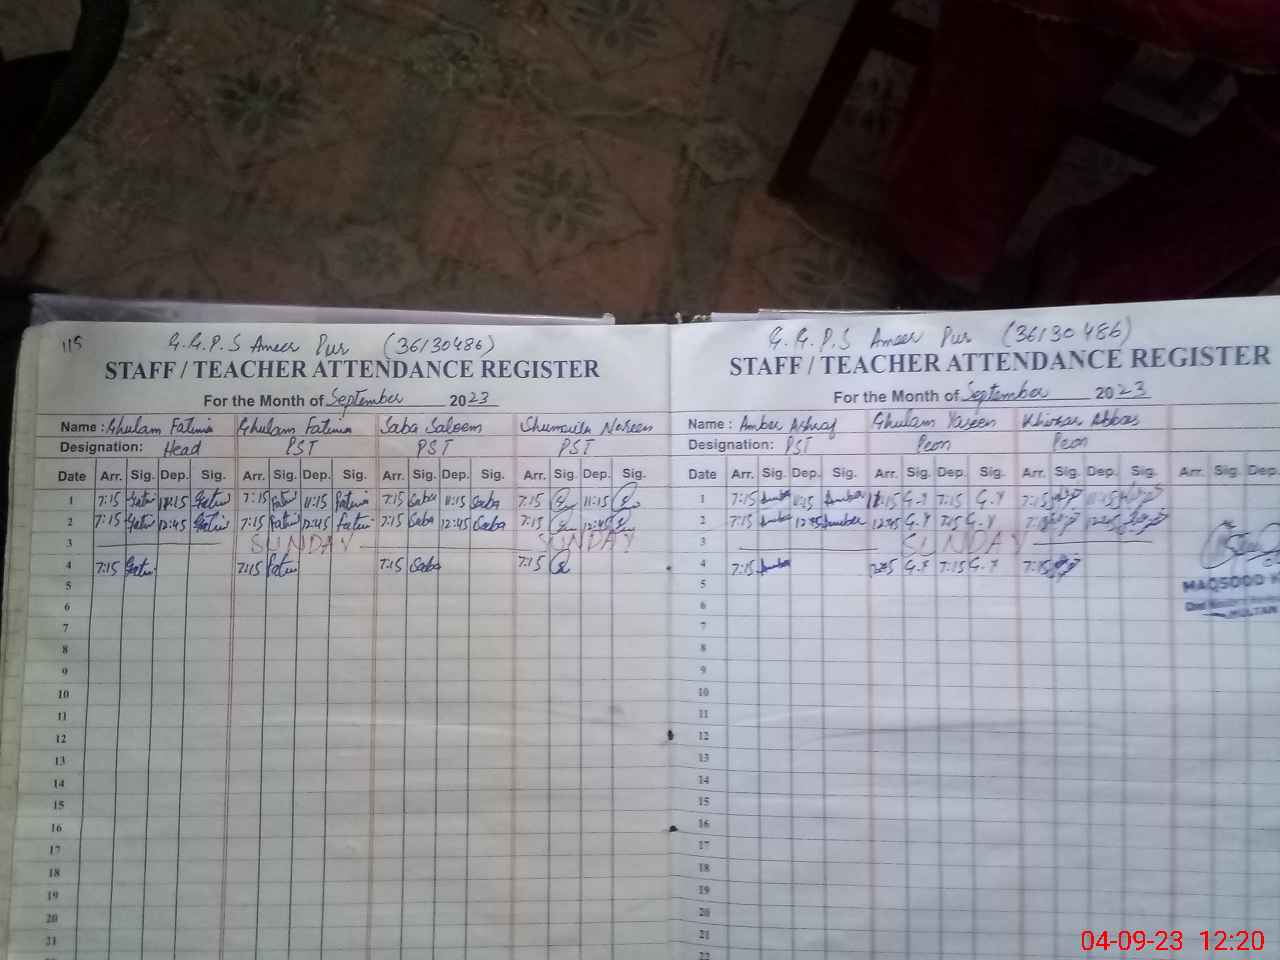 115
G.G.P.S Ameer Pur (36130486)
STAFF / TEACHER ATTENDANCE REGISTER
For the Month of September 2023
Name : Ghulam Fatima Ghulam Fatima Saba Saleem Shumaila Nasreen
Designation: Head PST PST PST
Date Arr. Sig. Dep. Sig. Arr. Sig. Dep. Sig. Arr. Sig. Dep. Sig. Arr. Sig. Dep. Sig.
1 7:15 Fatima 11:15 Fatima 7:15 Fatima 11:15 Fatima 7:15 Saba 11:15 Saba 7:15 11:15
2 7:15 Fatima 12:45 Fatima 7:15 Fatima 12:45 Fatima 7:15 Saba 12:45 Saba 7:15 12:45
3 SUNDAY SUNDAY
4 7:15 Fatima 7:15 Fatima 7:15 Saba 7:15
5
6
7
8
9
10
11
12
13
14
15
16
17
18
19
20
21
G.G.P.S Ameer Pur (36130486)
STAFF / TEACHER ATTENDANCE REGISTER
For the Month of September 2023
Name : Amber Ashraf Ghulam Yaseen Khizar Abbas
Designation: PST Peon Peon
Date Arr. Sig. Dep. Sig. Arr. Sig. Dep. Sig. Arr. Sig. Dep. Sig. Arr. Sig. Dep.
1 7:15 Amber 11:15 Amber G.Y 7:15 G.Y 7:15 11:15
2 7:15 Amber 12:45 Amber 12:45 G.Y 7:15 G.Y 7:15 12:45
3 SUNDAY
4 7:15 Amber G.Y 7:15 G.Y 7:15
5
6
7
8
9
10
11
12
13
14
15
16
17
18
19
20
21
22
MAQSOOD
MULTAN
04-09-23 12:20